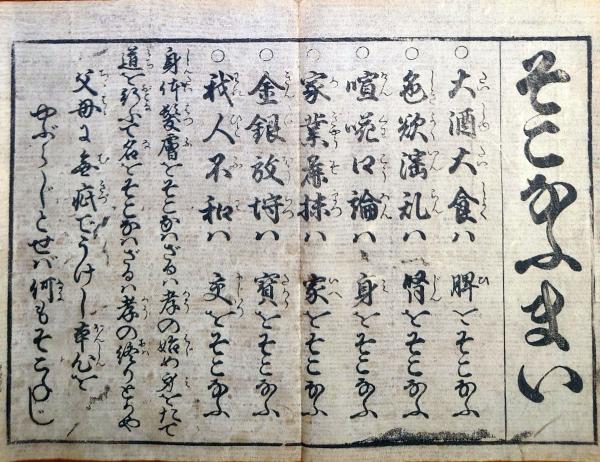 そこなふまい
○大酒大食ハ 脾をそこなふ
○色欲滛乱ハ 腎をそこなふ
○喧嘩口論ハ 身をそこなふ
○家業麁抹ハ 家をそこなふ
○金銀放埒ハ 寳をそこなふ
○我人不和ハ 交をそこなふ
身体髪膚をそこなハざるハ孝の始め身をたて
道を行ふて名をそこなハざるハ孝の終りとかや
父母に無疵でうけし本心を
やぶらじとせバ何もそこねじ